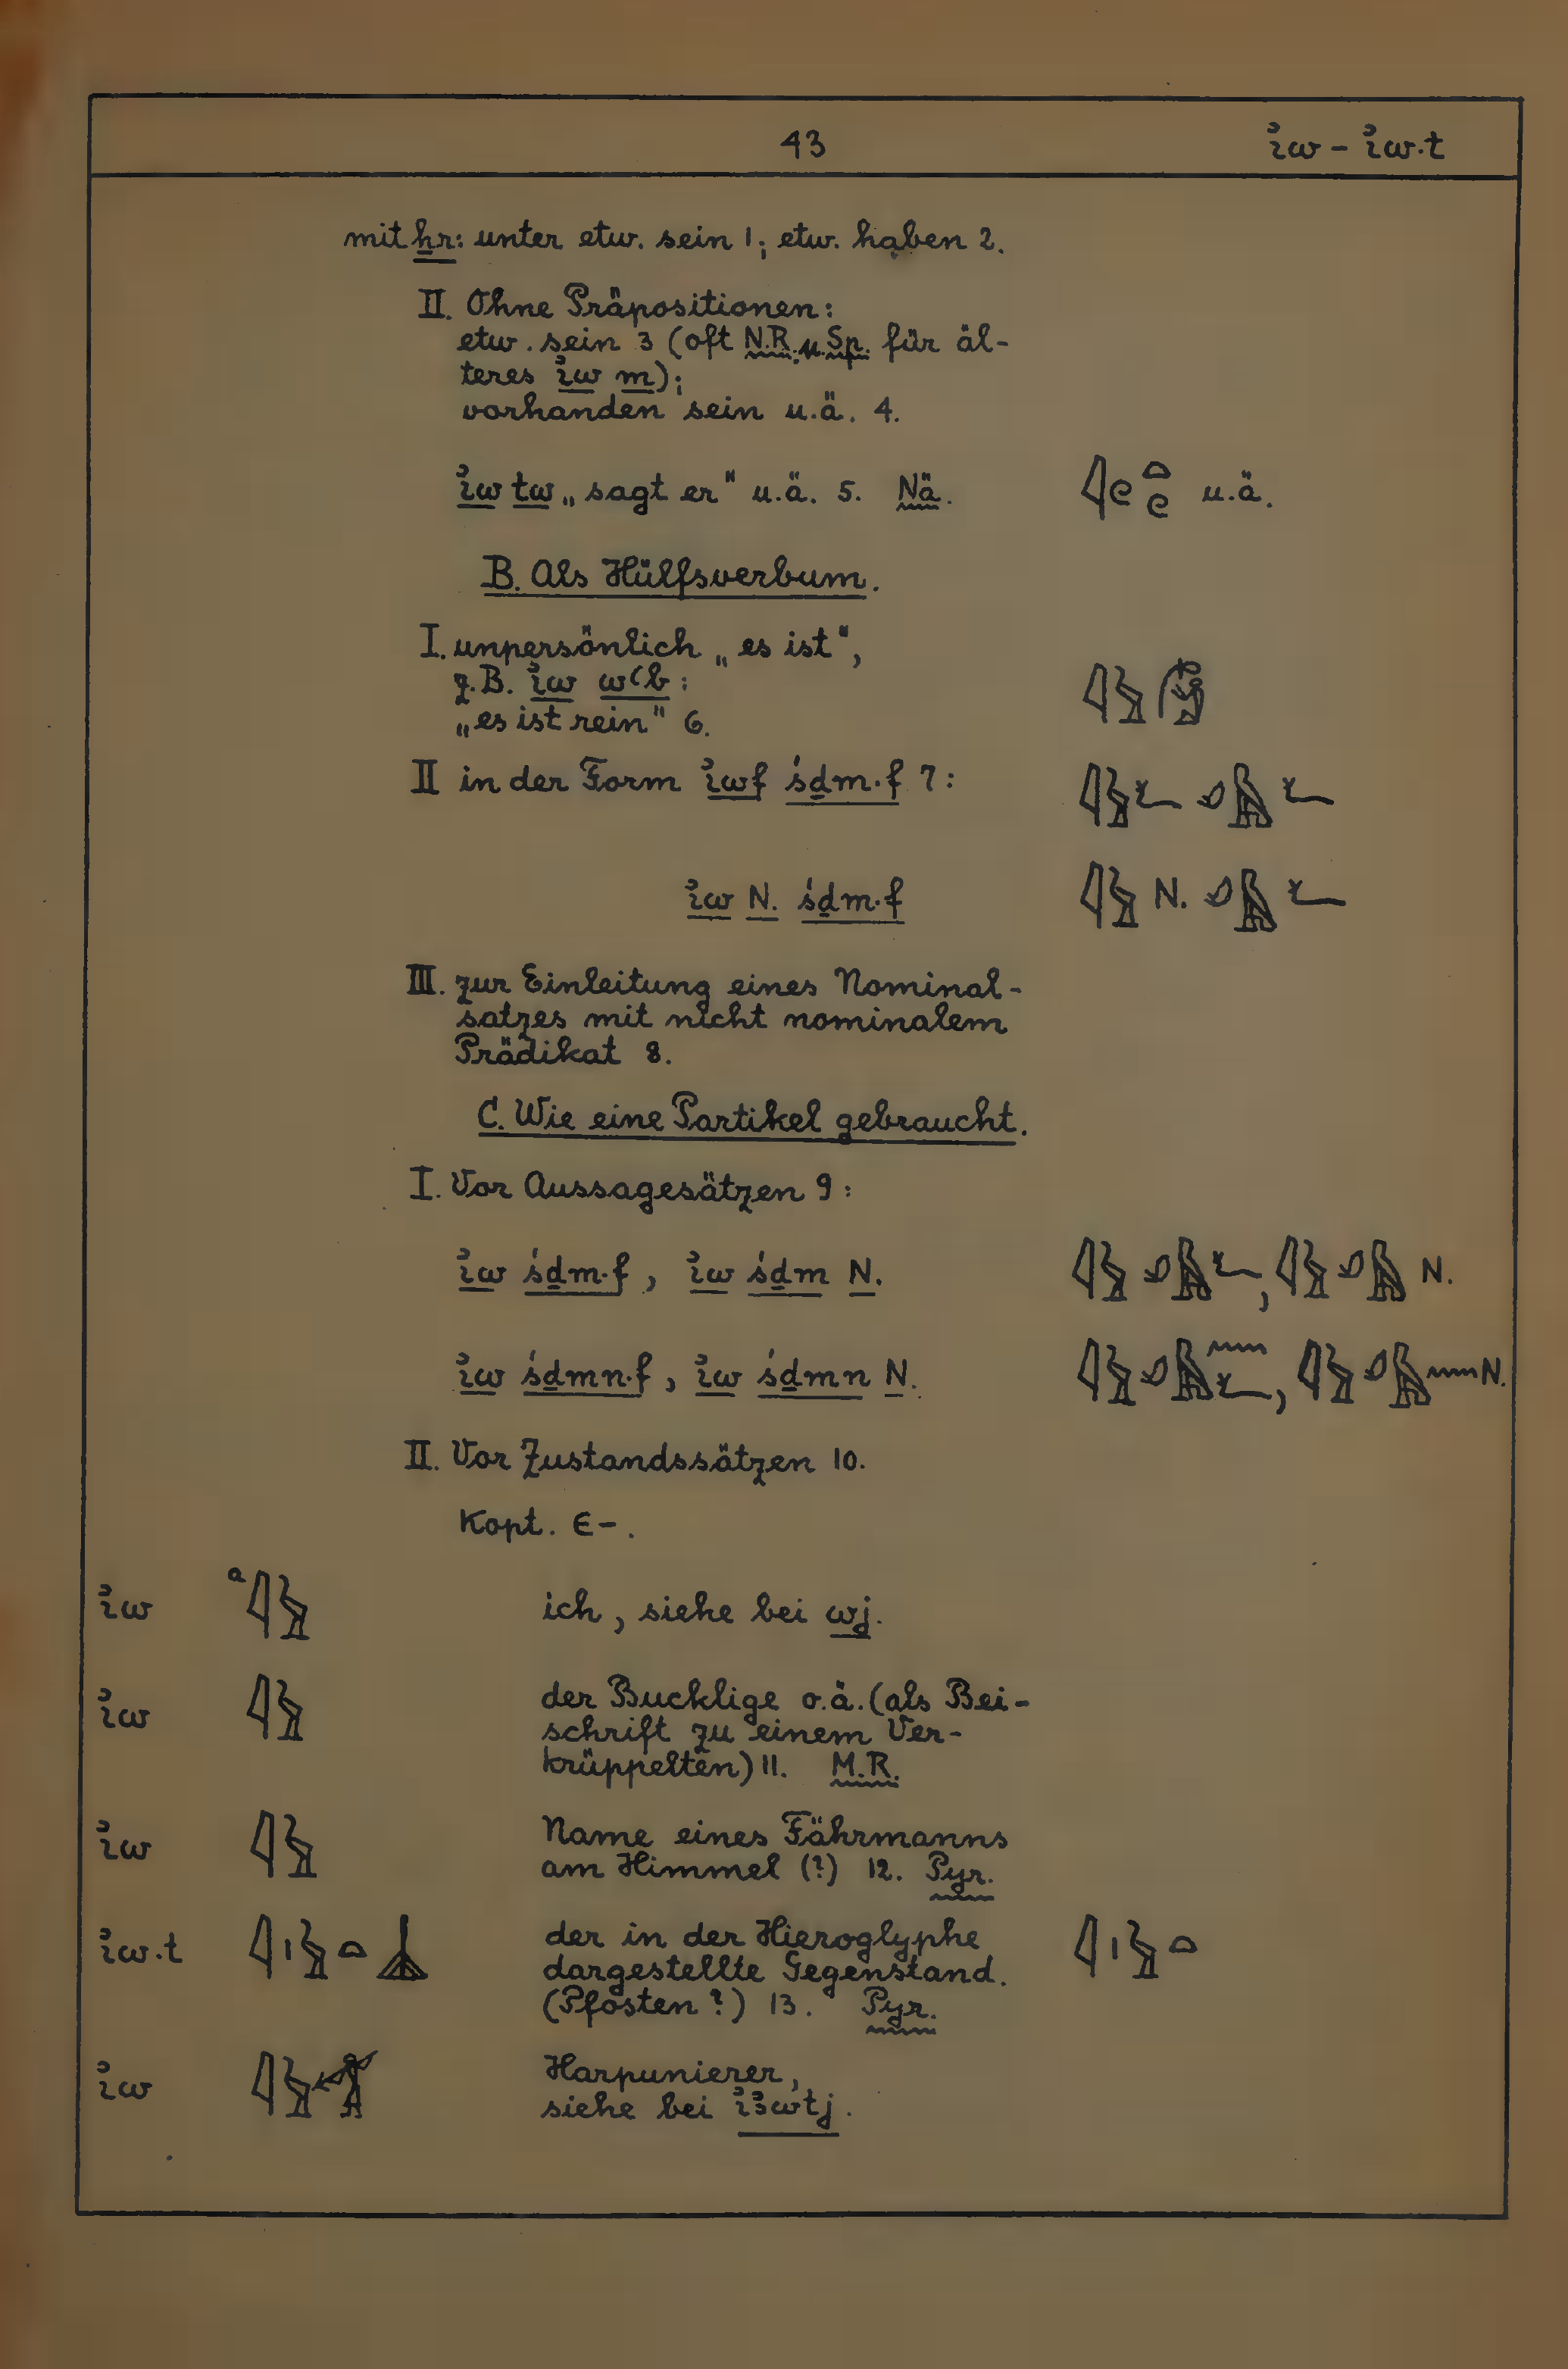 43
ı͗w - ı͗w.t
mit ẖr: unter etw. sein 1; etw. haben 2.
II. Ohne Präpositionen:
etw. sein 3 (oft N.R. u. Sp. für äl-
teres ı͗w m);
vorhanden sein u.ä. 4.
ı͗w tw „sagt er" u.ä. 5. Nä. 𓇋𓏲𓏏𓏲 u.ä.
B. Als Hülfsverbum.
I. unpersönlich „es ist",
z.B. ı͗w wꜥb:
„es ist rein" 6.
𓇋𓅱
II in der Form ı͗wf śḏm.f 7: 𓇋𓅱𓆑 𓄔𓅓𓆑
ı͗w N. śḏm.f 𓇋𓅱 N. 𓄔𓅓𓆑
III. zur Einleitung eines Nominal-
satzes mit nicht nominalem
Prädikat 8.
C. Wie eine Partikel gebraucht.
I. Vor Aussagesätzen 9:
ı͗w śḏm.f, ı͗w śḏm N. 𓇋𓅱𓄔𓅓𓆑, 𓇋𓅱𓄔𓅓 N.
ı͗w śḏmn.f, ı͗w śḏmn N. 𓇋𓅱𓄔𓅓𓈖𓆑, 𓇋𓅱𓄔𓅓𓈖 N.
II. Vor Zustandssätzen 10.
Kopt. ⲉ-.
ı͗w a 𓇋𓅱 ich, siehe bei wj.
ı͗w 𓇋𓅱 der Bucklige o.ä. (als Bei-
schrift zu einem Ver-
krüppelten) 11. M.R.
ı͗w 𓇋𓅱 Name eines Fährmanns
am Himmel (?) 12. Pyr.
ı͗w.t 𓇋𓏤𓅱𓏏 der in der Hieroglyphe 𓇋𓏤𓅱𓏏
dargestellte Gegenstand.
(Pfosten?) 13. Pyr.
ı͗w 𓇋𓅱 Harpunierer,
siehe bei ı͗ꜣwtj.